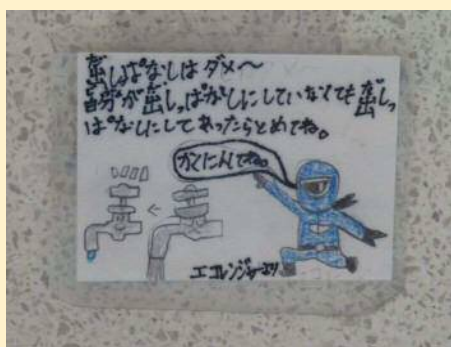 出しっぱなしはダメ〜
自分が出しっぱなしにしていなくても出しっ
ぱなしにしてあったらとめてね。
かくにんしてね。
エコレンジャーより